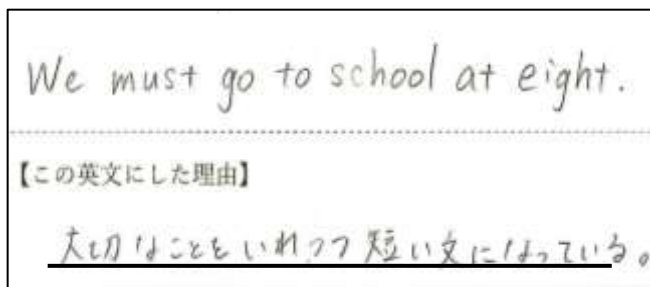 We must go to school at eight.
【この英文にした理由】
大切なことをいれつつ短い文になっている。